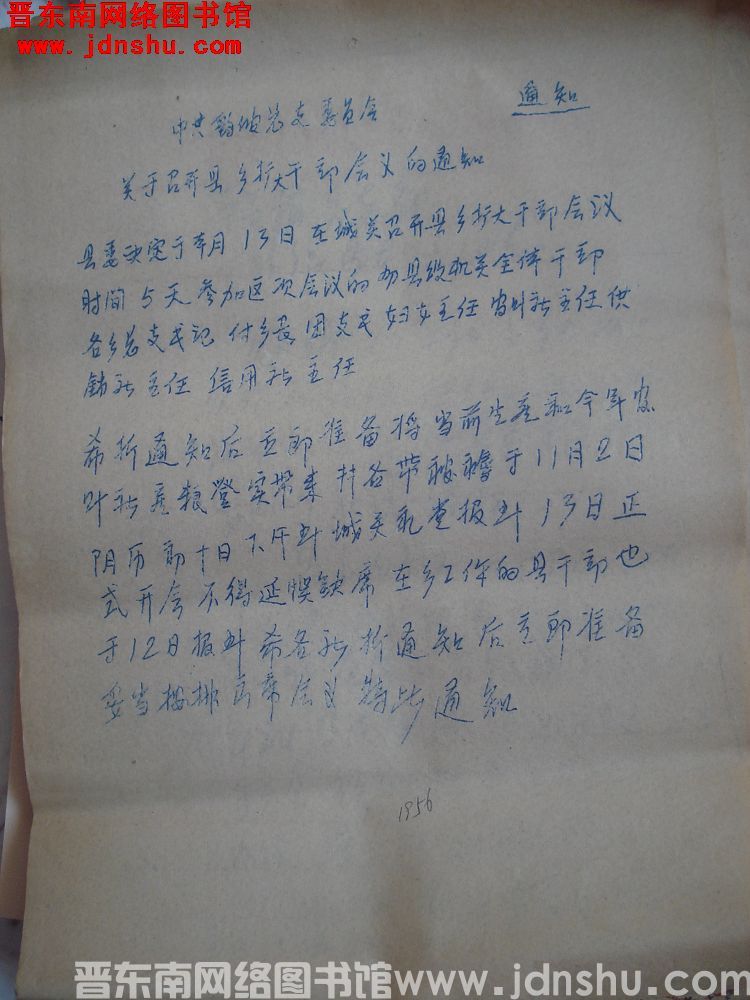 晋东南网络图书馆
www.jdnshu.com
通知
中共 总支委员会
关于召开县乡扩大干部会议的通知
县委决定于本月13日在城关召开县乡扩大干部会议
时间5天参加这次会议的 县级机关全体干部
各乡总支书记 付乡长 团支书 妇女主任 农业社主任 供
销社主任 信用社主任
希折通知后立即准备将当前生产和今年农
叶社产粮 实带来并各带 于11月2日
阴历初十日下午到城关 报到13日正
式开会不得延悞缺席在乡工作的县干部也
于12日报到希各社折通知后立即准备
妥当按排 席会议特此通知
1956
晋东南网络图书馆www.jdnshu.com